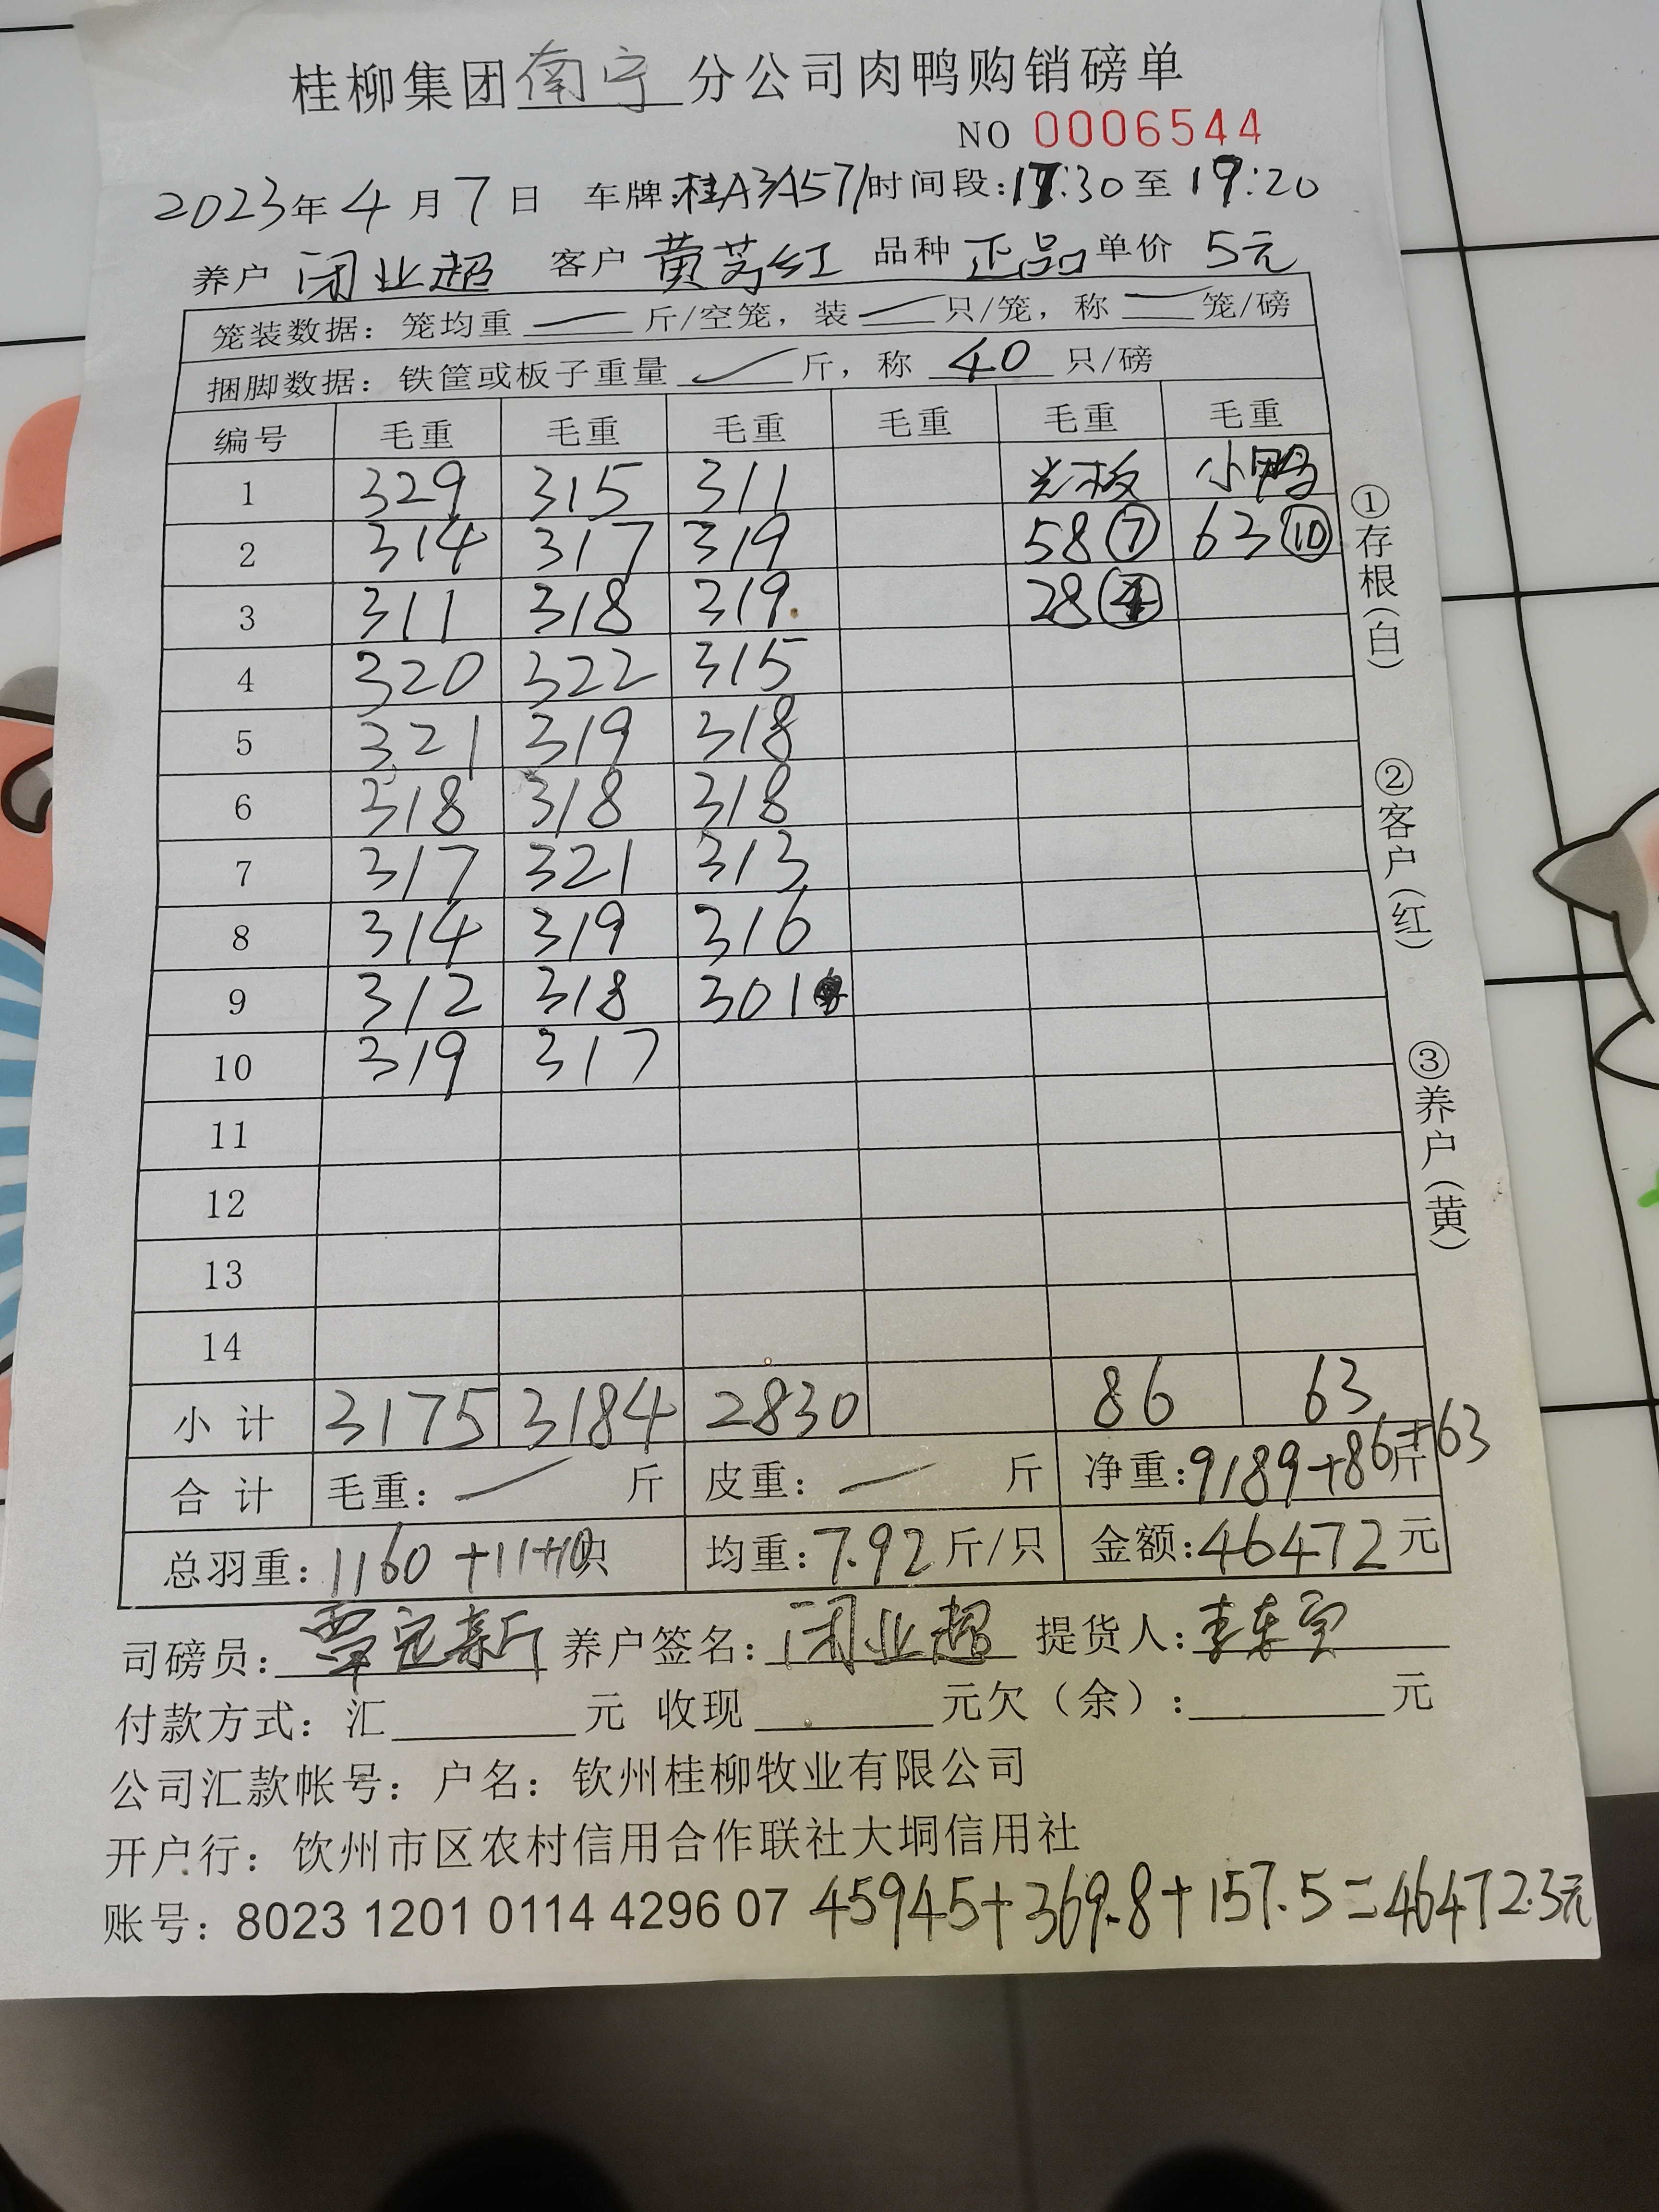 桂柳集团南宁分公司肉鸭购销磅单
NO 0006544
2023年4月7日 车牌:桂A3A571 时间段:17:30至19:20
养户 闭业超 客户 黄红 品种 正品 单价 5元
笼装数据：笼均重 — 斤/空笼，装 — 只/笼，称 — 笼/磅
捆脚数据：铁筐或板子重量 — 斤，称 40 只/磅
编号 毛重 毛重 毛重 毛重 毛重 毛重
1 329 315 311 光板 小鸭
2 314 317 319 58⑦ 63⑩
3 311 318 319 28④
4 320 322 315
5 321 319 318
6 318 318 318
7 317 321 313
8 314 319 316
9 312 318 301
10 319 317
11
12
13
14
小计 3175 3184 2830 86 63
合计 毛重： — 斤 皮重： — 斤 净重:9189+86斤+63
总羽重：1160+11+10只 均重:7.92斤/只 金额:46472元
司磅员：覃冠新 养户签名：闭业超 提货人：李东
付款方式：汇 元 收现 元欠（余）： 元
公司汇款帐号：户名：钦州桂柳牧业有限公司
开户行：钦州市区农村信用合作联社大垌信用社
账号：8023 1201 0114 4296 07 45945+369.8+157.5=46472.3元
①存根（白）
②客户（红）
③养户（黄）